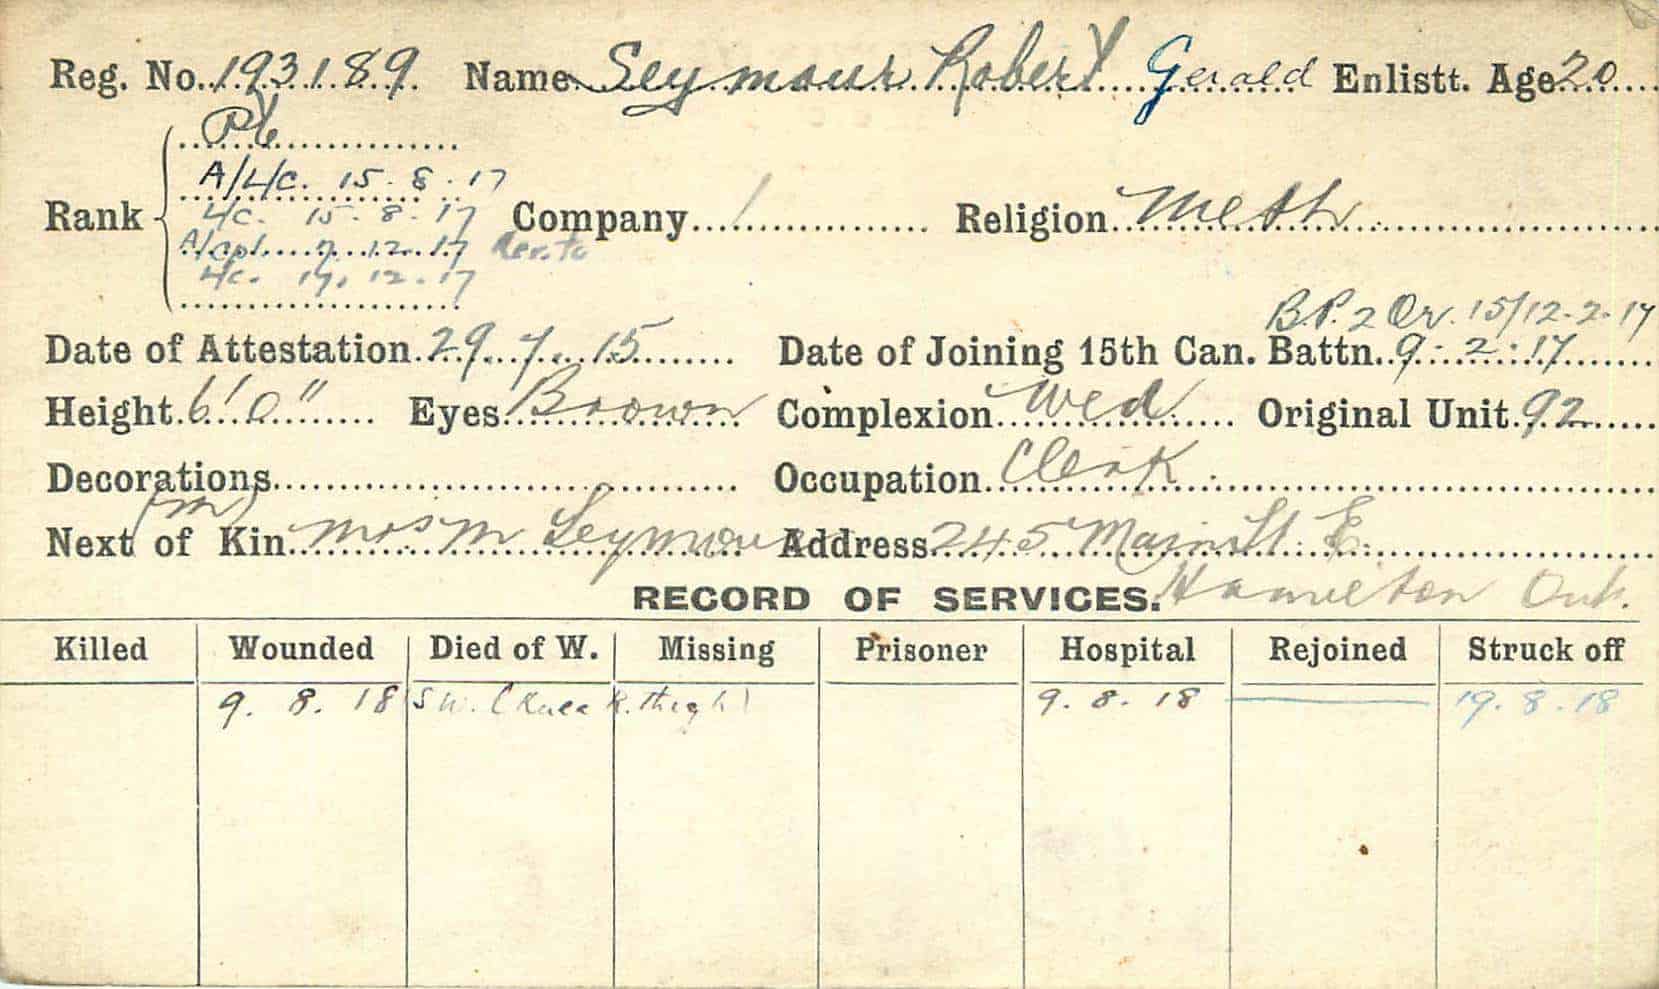 Reg. No. 193189 Name Seymour Robert Gerald Enlistt. Age 20
Pte
A/L/C. 15-8-17
Rank L/C. 15-8-17 Company 1 Religion Meth
A/Cpl. 7.12.17 Rev. to
L/C. 17.12.17
B.P. 2 Or. 15/12-2-17
Date of Attestation 29.7.15 Date of Joining 15th Can. Battn. 9-2-17
Height 6'0" Eyes Brown Complexion Med Original Unit 92
Decorations Occupation Clerk
(m)
Next of Kin Mrs M Seymour Address 245 Main St. E.
RECORD OF SERVICES. Hamilton Ont.
Killed Wounded Died of W. Missing Prisoner Hospital Rejoined Struck off
9. 8. 18 S.W. (Knee R. thigh) 9. 8. 18 19. 8. 18